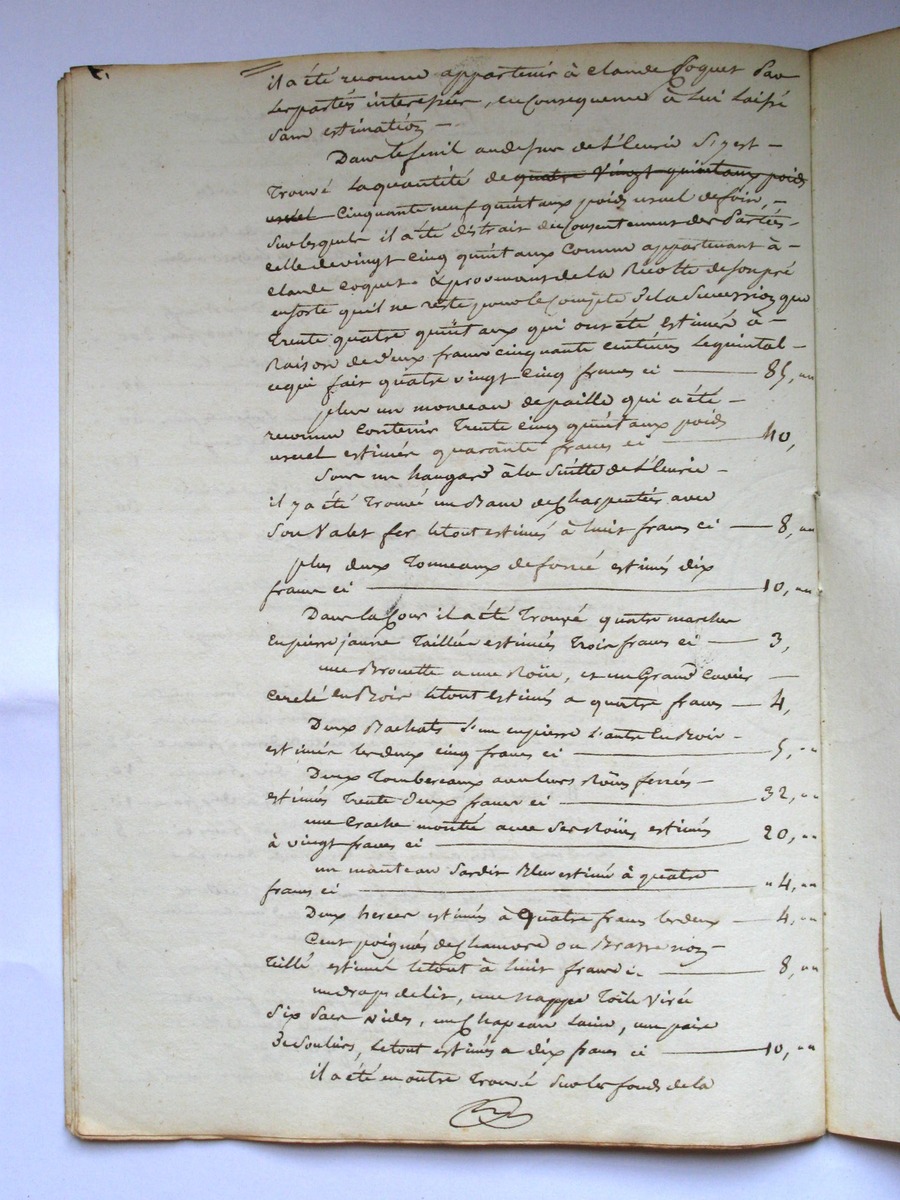 il a été reconnu appartenir à Claude Coquet par
les parties interessées, en Consequence à Lui Laissé
sans estimation —
Dans le fenil au dessus de l'Ecurie s'y est —
Trouvé La quantité de quatre Vingt quintaux poids
usuel Cinquante neuf quintaux poids usuel de foin, —
sur lesquels il a été distrait du Consentement des Parties —
celle de vingt cinq quintaux comme appartenant à —
Claude Coquet & provenant de la Recolte de son pré
ensorte qu'il ne reste pour le Compte de la Succession que
Trente quatre quintaux qui ont été estimés à —
Raison de deux francs cinquante centimes Le quintal —
ce qui fait quatre vingt cinq francs ci — 85, "
plus un monceau de paille qui a été —
reconnu Contenir Trente cinq quintaux poids
usuel estimés quarante francs ci — 40,
Sous un hangard à la suitte de l'Ecurie —
il y a été Trouvé un Banc de Charpentier avec
son Valet fer le tout estimés à huit francs ci — 8, "
plus deux Tonneaux de estimés dix
francs ci — 10, "
Dans la Cour il a été Trouvé quatre marches
en pierre jaune Taillée estimés Trois francs ci — 3,
une Brouette a une Roüe, et un Grand Cuvier —
Cerclé en Bois le tout estimés a quatre francs — 4,
Deux Bachats l'un en pierre l'autre En Bois —
estimés les deux cinq francs ci — 5, "
Deux Tombereaux avec leurs Roües ferrées —
estimés Trente deux francs ci — 32, "
une montée avec ses Roües estimés
à vingt francs ci — 20, "
un manteau Bleu estimé à quatre
francs ci — " 4, "
Deux herses estimés à Quatre francs les deux — 4, "
Cent poignés de Chanvre ou —
Tillé estimé le tout à huit francs ci — 8, "
un drap de lit, une nappe Toile
Six Sacs vides, un Chapeau Laine, une paire
de souliers, le tout estimés a dix francs ci — 10, "
il a été en outre Trouvé sur les fonds de la